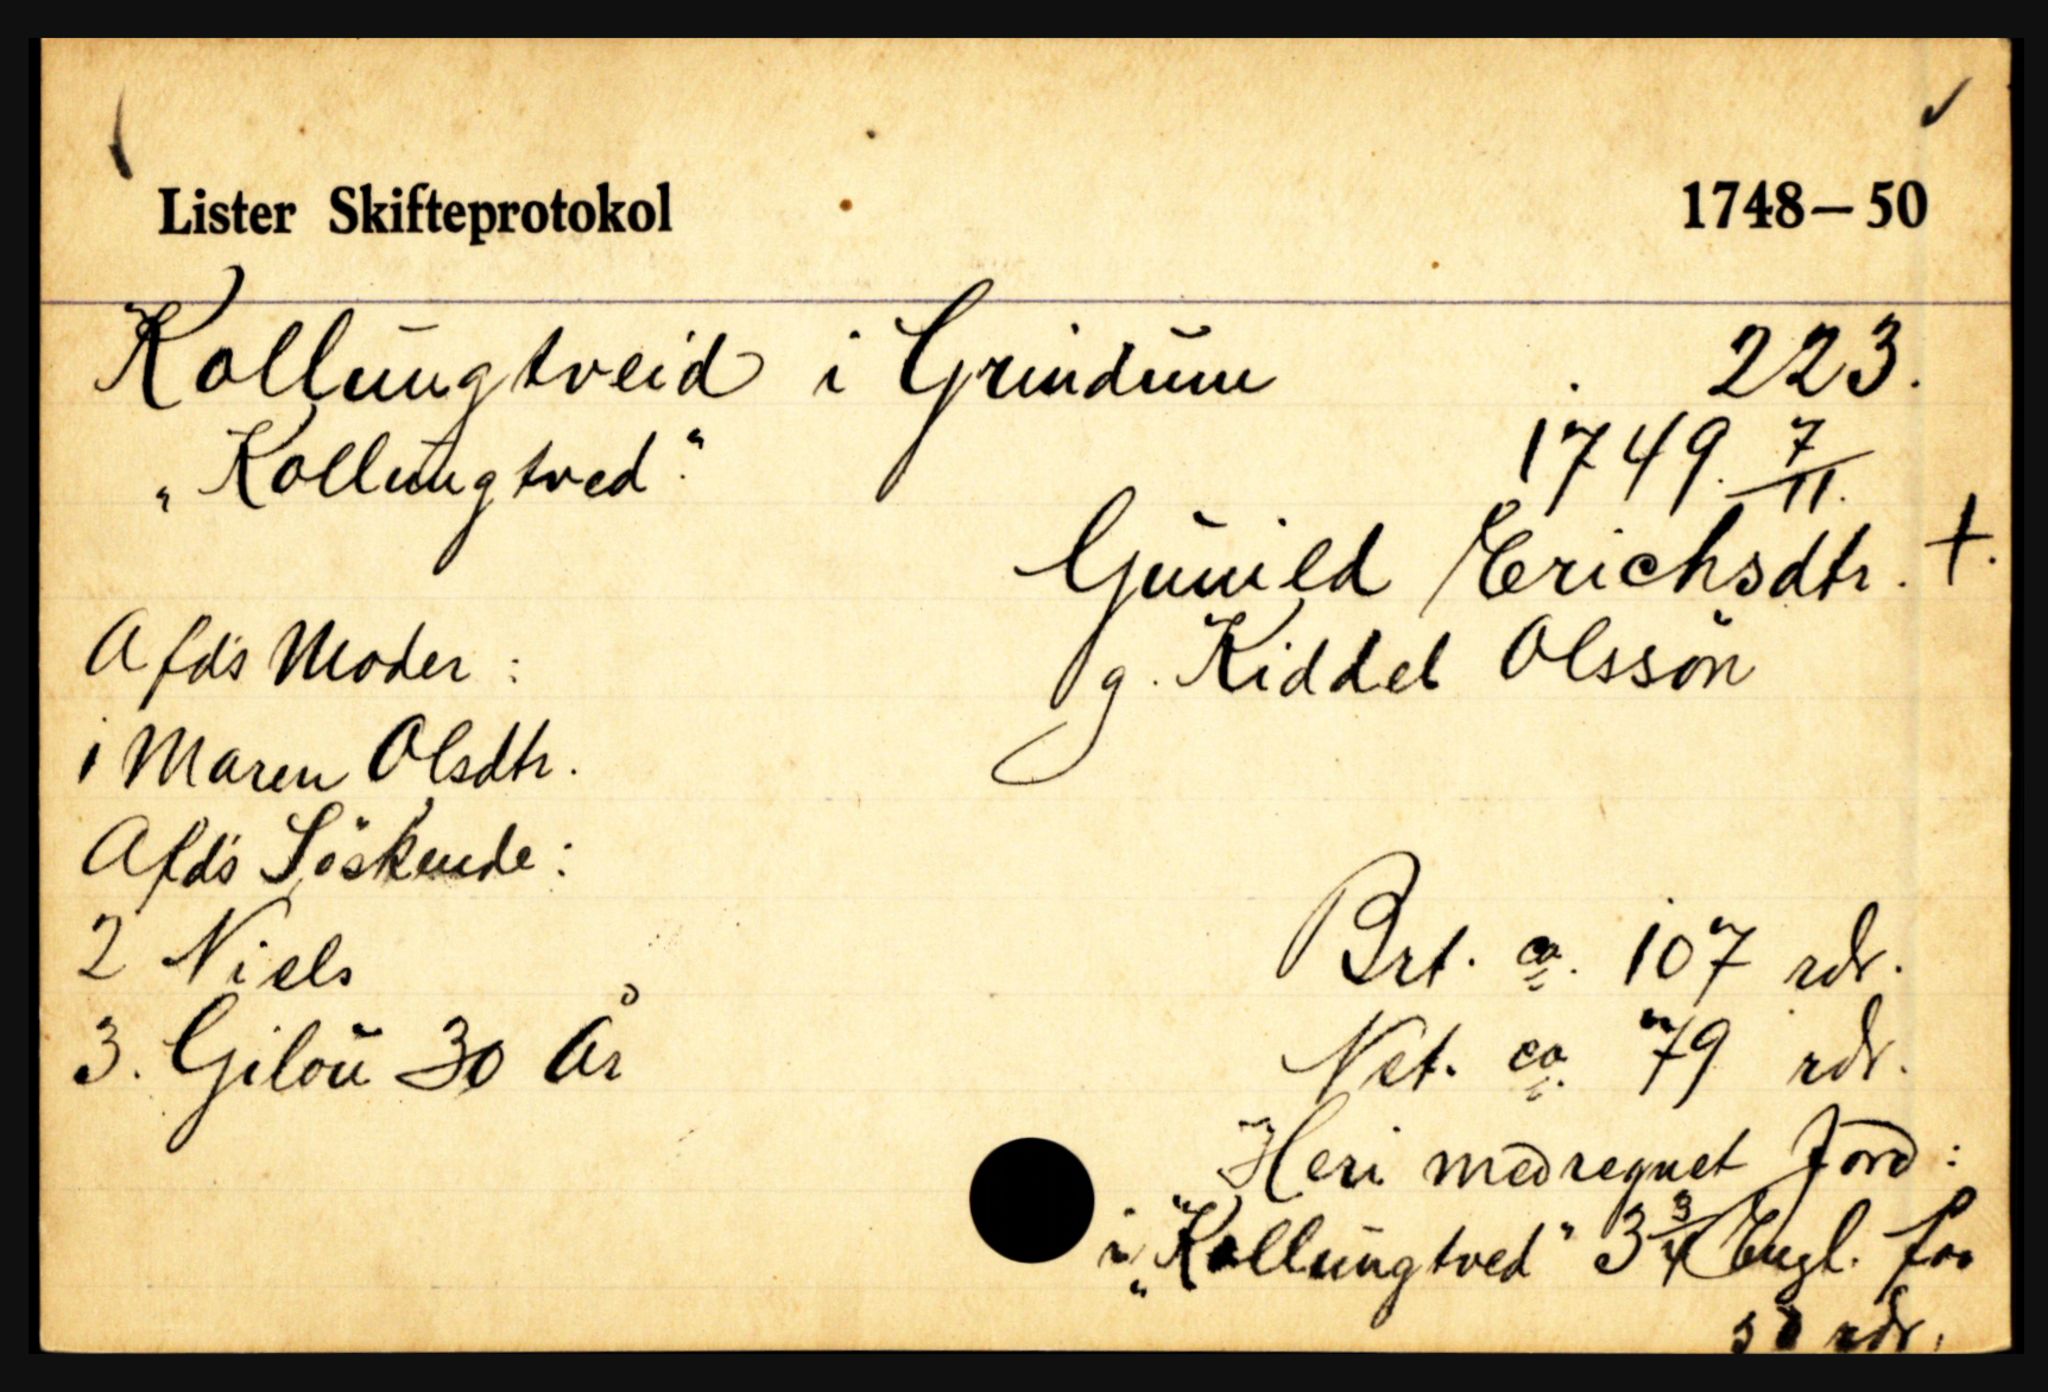 Lister Skifteprotokol 1748–50
Kollungtveid i Grindum 223.
„Kollungtved". 1749. 7/11.
Gunild Erichsdtr. †.
Afd's Moder: g. Kiddel Olssön
1 Maren Olsdtr.
Afd's Söskende:
2 Niels Brt. ca. 107 rdr.
3. Gilou 30 År Net. ca. 79 rdr.
Heri medregnet Jord:
i „Kollungtved" 3 3/4 Engl. for
50 rdr.